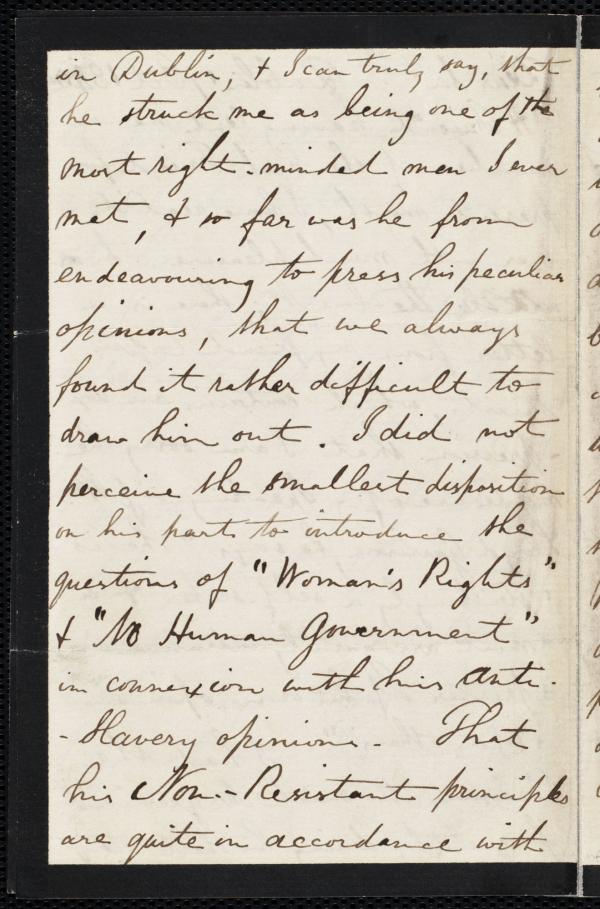 in Dublin, & I can truly say, that
he struck me as being one of the
most right-minded men I ever
met, & so far was he from
endeavouring to press his peculiar
opinions, that we always
found it rather difficult to
draw him out. I did not
perceive the smallest disposition
on his part to introduce the
questions of "Woman's Rights"
& "No Human Government"
in connexion with his Anti-
-Slavery opinions. That
his Non-Resistant principles
are quite in accordance with